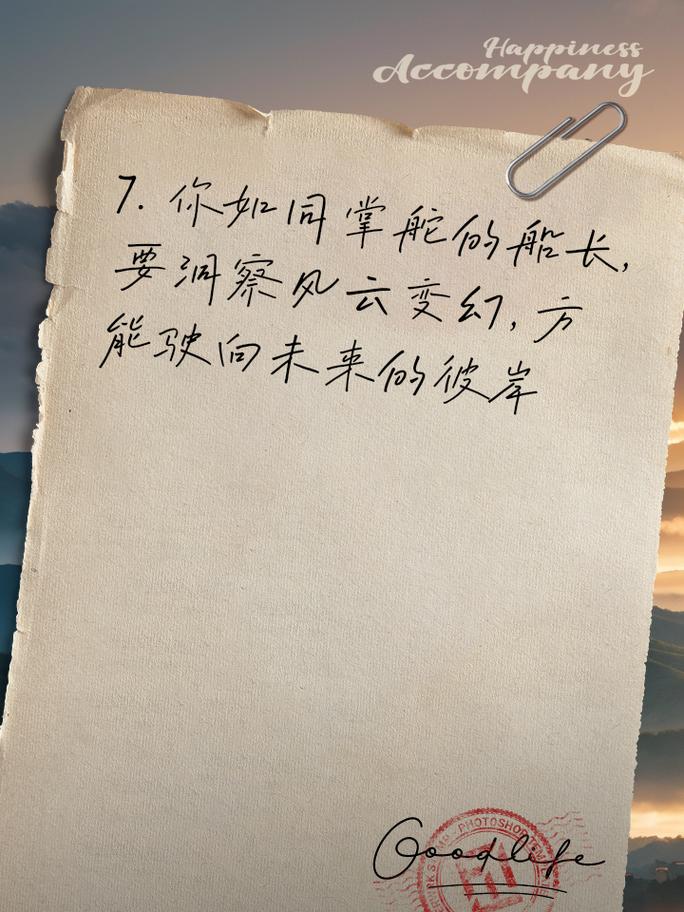 Happiness
Accompany
7. 你如同掌舵的船长,
要洞察风云变幻, 方
能驶向未来的彼岸
PHOTOSHOP
Goodlife